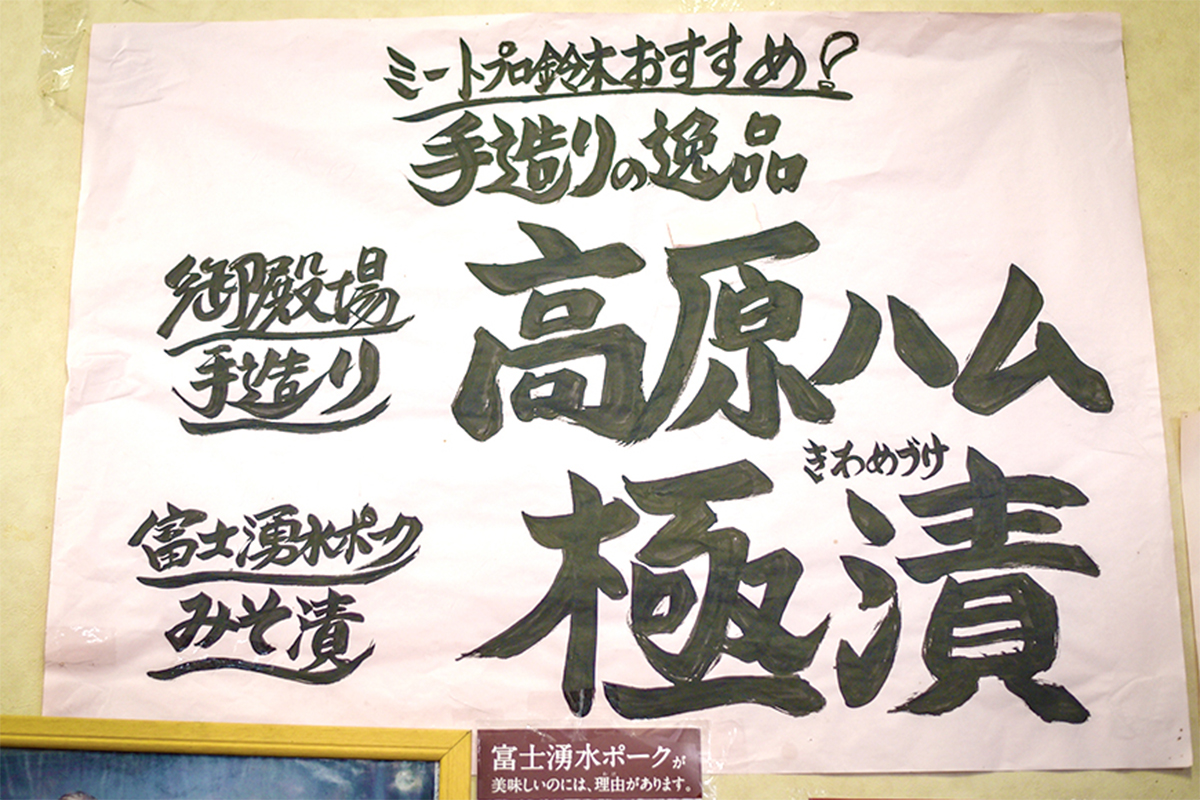 ミートプロ鈴木おすすめ!
手造りの逸品
御殿場
手造り
高原ハム
富士湧水ポーク
みそ漬
きわめづけ
極漬
富士湧水ポークが
美味しいのには、理由があります。